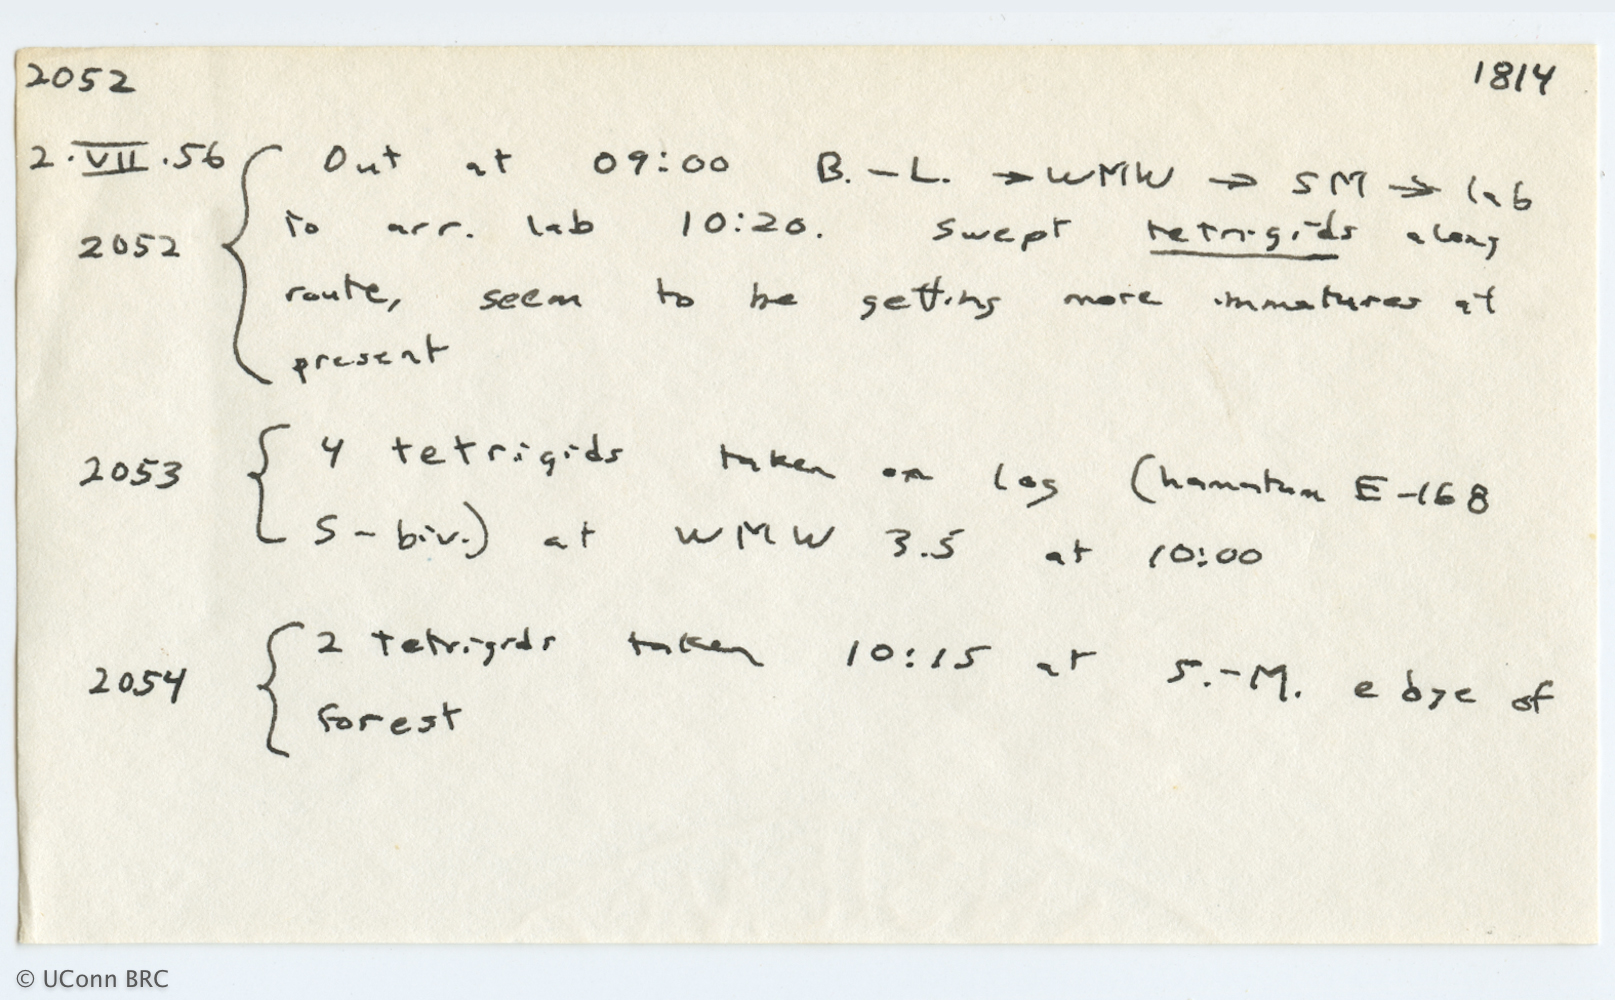 2052 1814
2.VII.56 Out at 09:00 B.-L. → WMW → SM → lab
2052 to arr. lab 10:20. Swept tetrigids along
route, seem to be getting more immatures at
present
2053 4 tetrigids taken on log (hamatum E-168
S-biv.) at WMW 3.5 at 10:00
2054 2 tetrigids taken 10:15 at S.-M. edge of
forest
© UConn BRC